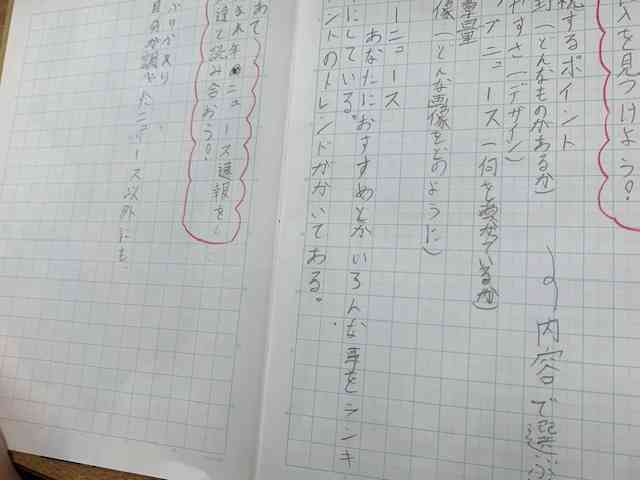 を見つけよう?
視するポイント
(どんなものがあるか)
やすさ(デザイン)
プニュース(何を載せているか)
量
像(どんな画像をどのように)
内容で選ぶ
ニュース
あなたにおすすめとかいろんな事をランキ
にしている。
ントのトレンドがかいてある。
ニュース速報を
達と読み合おう?
ふりかえり
ニュース以外にも